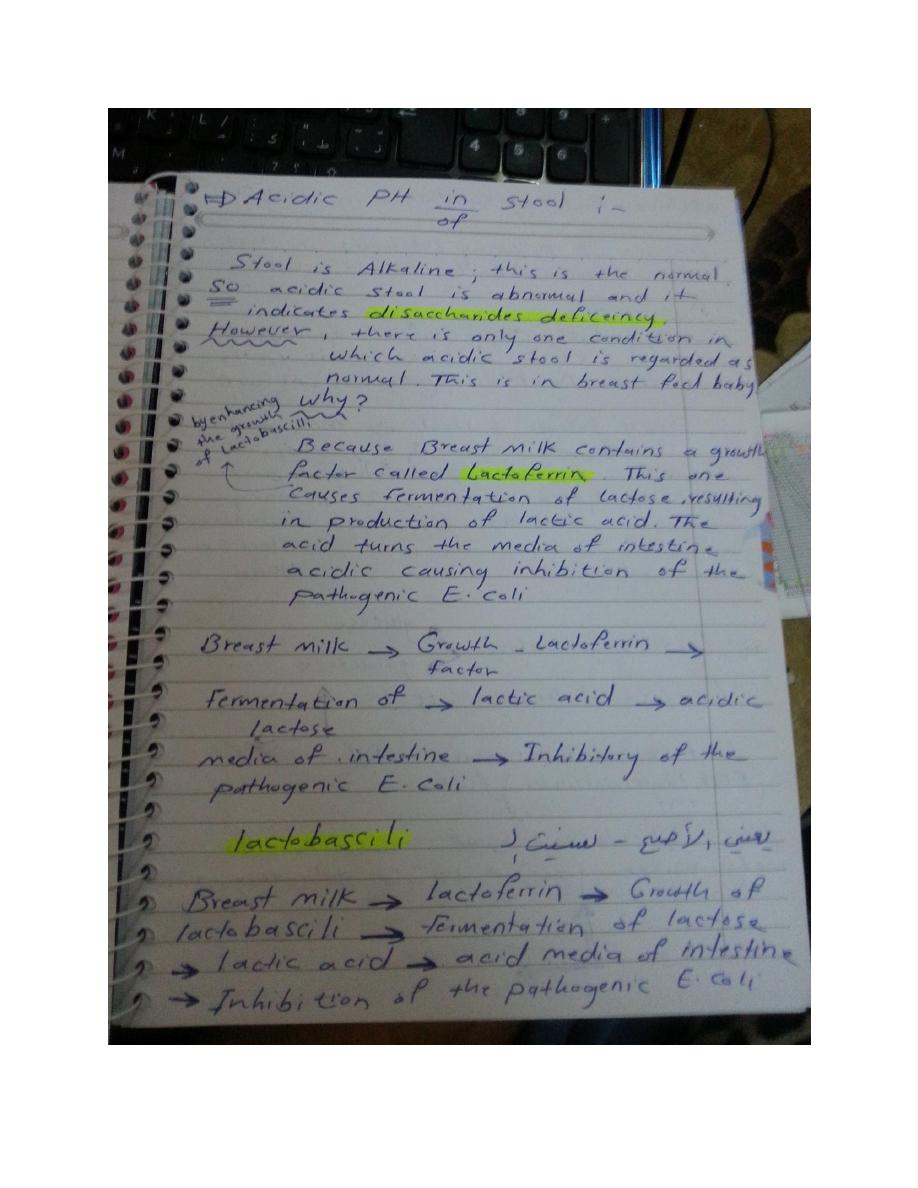 ⇒ Acidic PH in/of stool :-
Stool is Alkaline ; this is the normal.
So acidic stool is abnormal and it
indicates disaccharides deficeincy.
However, there is only one condition in
which acidic stool is regarded as
normal. This is in breast fed baby
Why?
by enhancing
the growth
of Lactobascilli
Because Breast milk contains a growth
factor called Lactoferrin. This one
causes fermentation of lactose, resulting
in production of lactic acid. The
acid turns the media of intestine
acidic causing inhibition of the
pathogenic E. coli
Breast milk → Growth - Lactoferrin →
factor
Fermentation of → lactic acid → acidic
lactose
media of intestine → Inhibitory of the
pathogenic E. coli
lactobascili يعني الأصح -
Breast milk → lactoferrin → Growth of
lactobascili → fermentation of lactose
→ lactic acid → acid media of intestine
→ Inhibition of the pathogenic E. coli
K
L
M
4
5
6
8
9
+